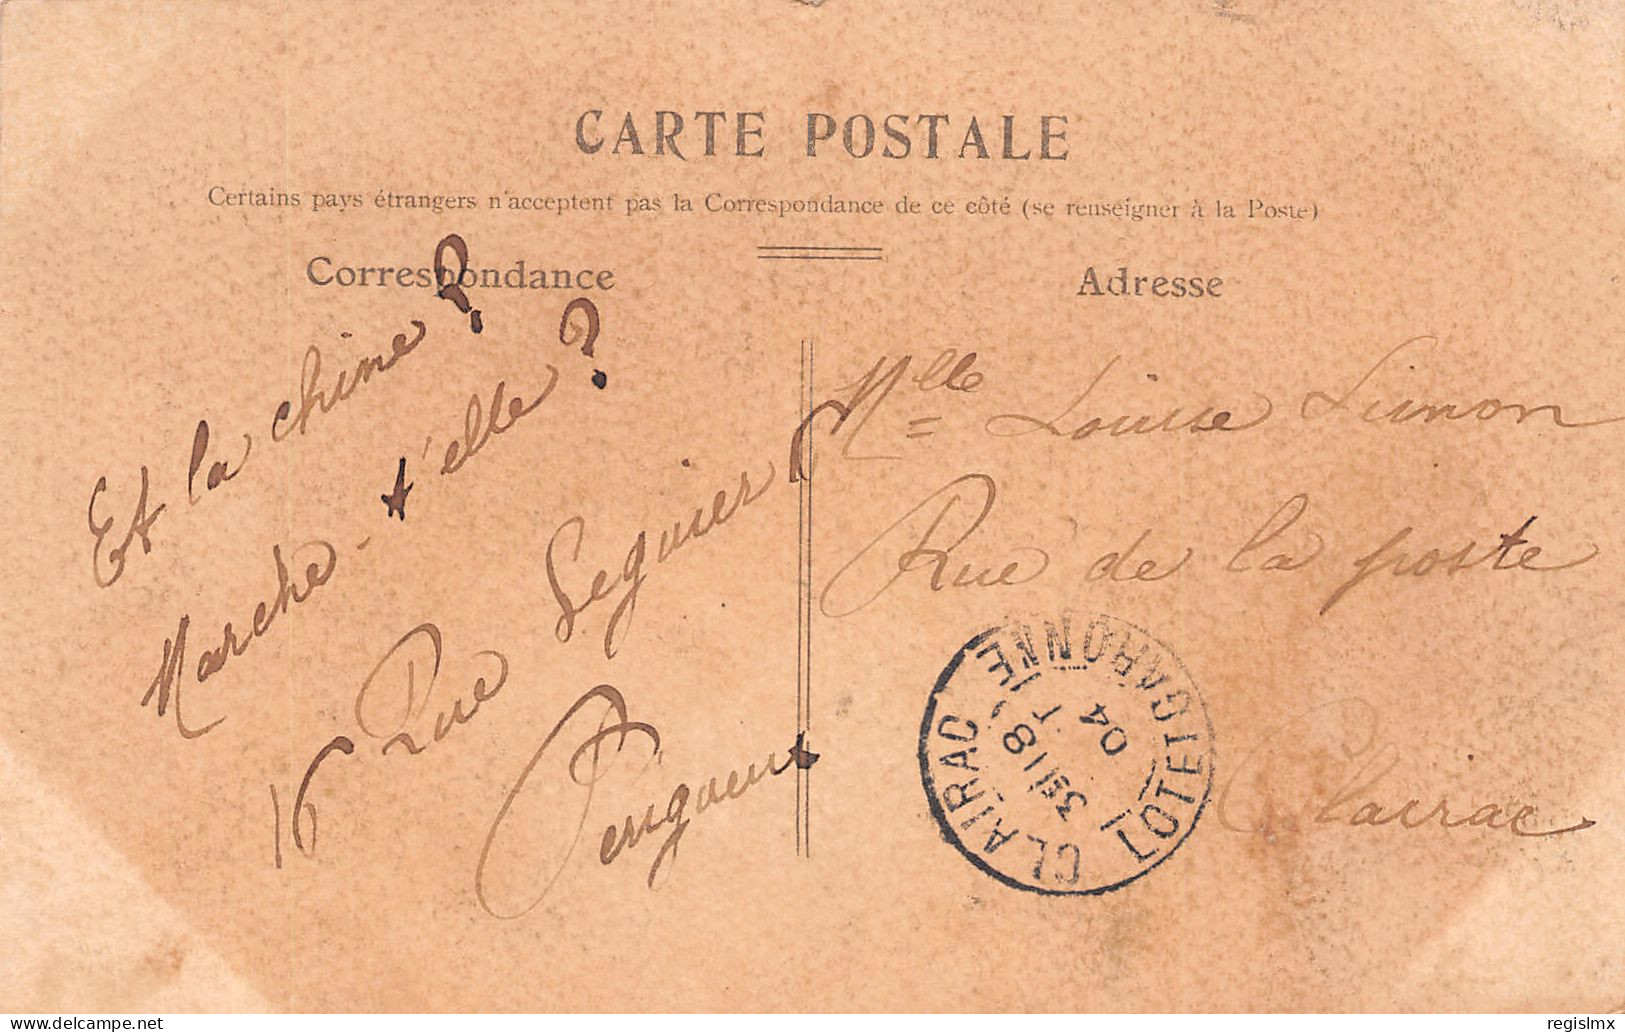 CARTE POSTALE
Certains pays étrangers n'acceptent pas la Correspondance de ce côté (se renseigner à la Poste)
Correspondance
Et la chine ?
Marche-t'elle ?
16 Rue Seguier
Perigueux
Adresse
Mlle Louise Simon
Rue de la poste
Clairac
CLAIRAC
LOT ET GARONNE
18
04
delcampe.net
regislmx